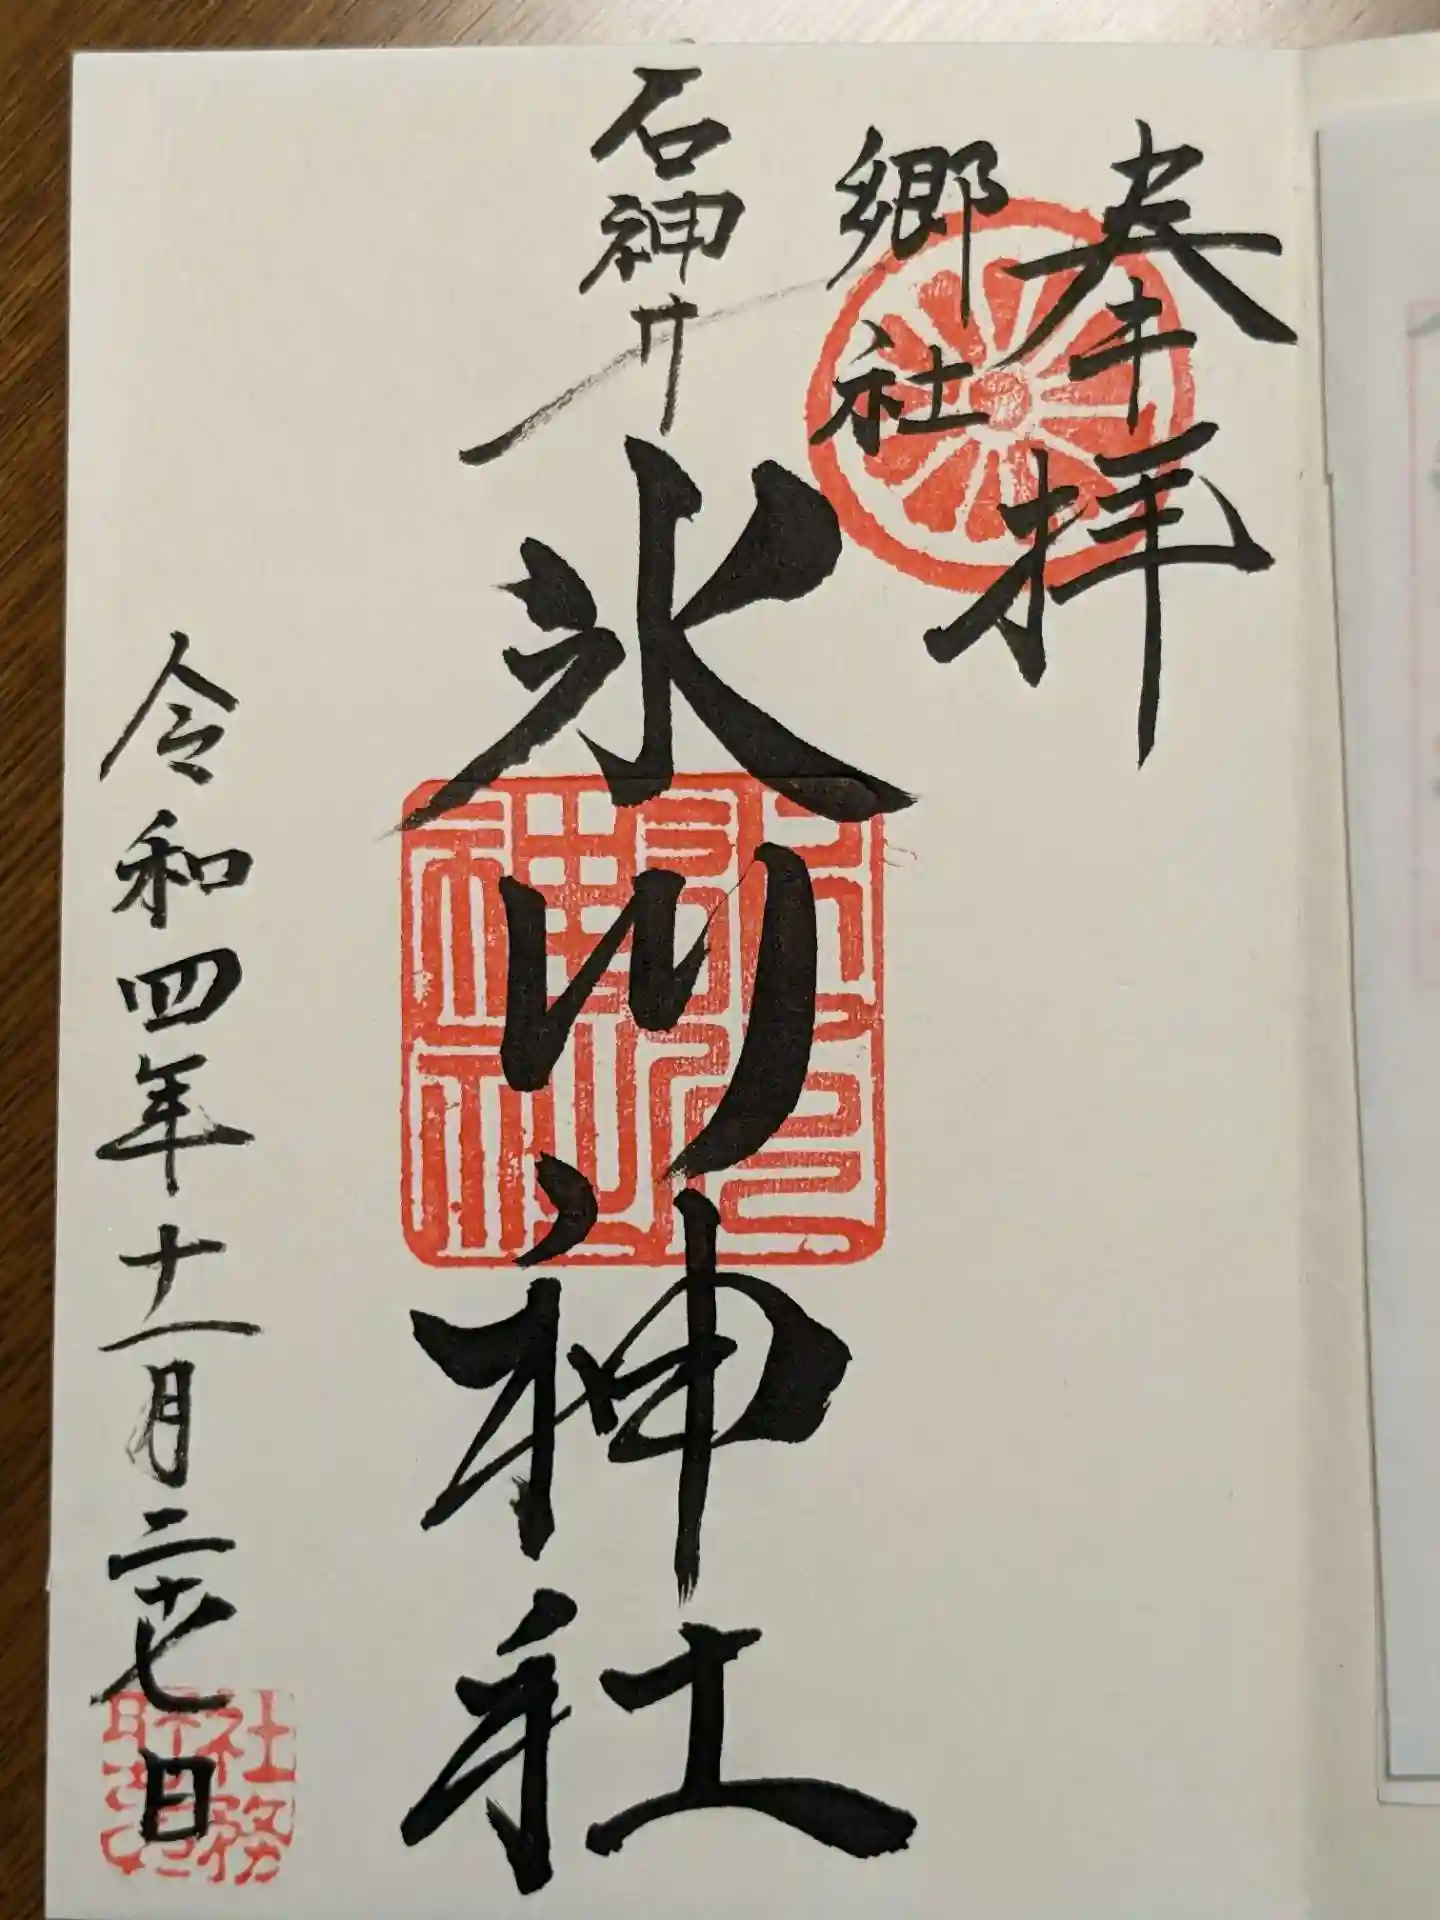 奉拝
郷社
石神井
氷川神社
令和四年十一月二十七日
社務